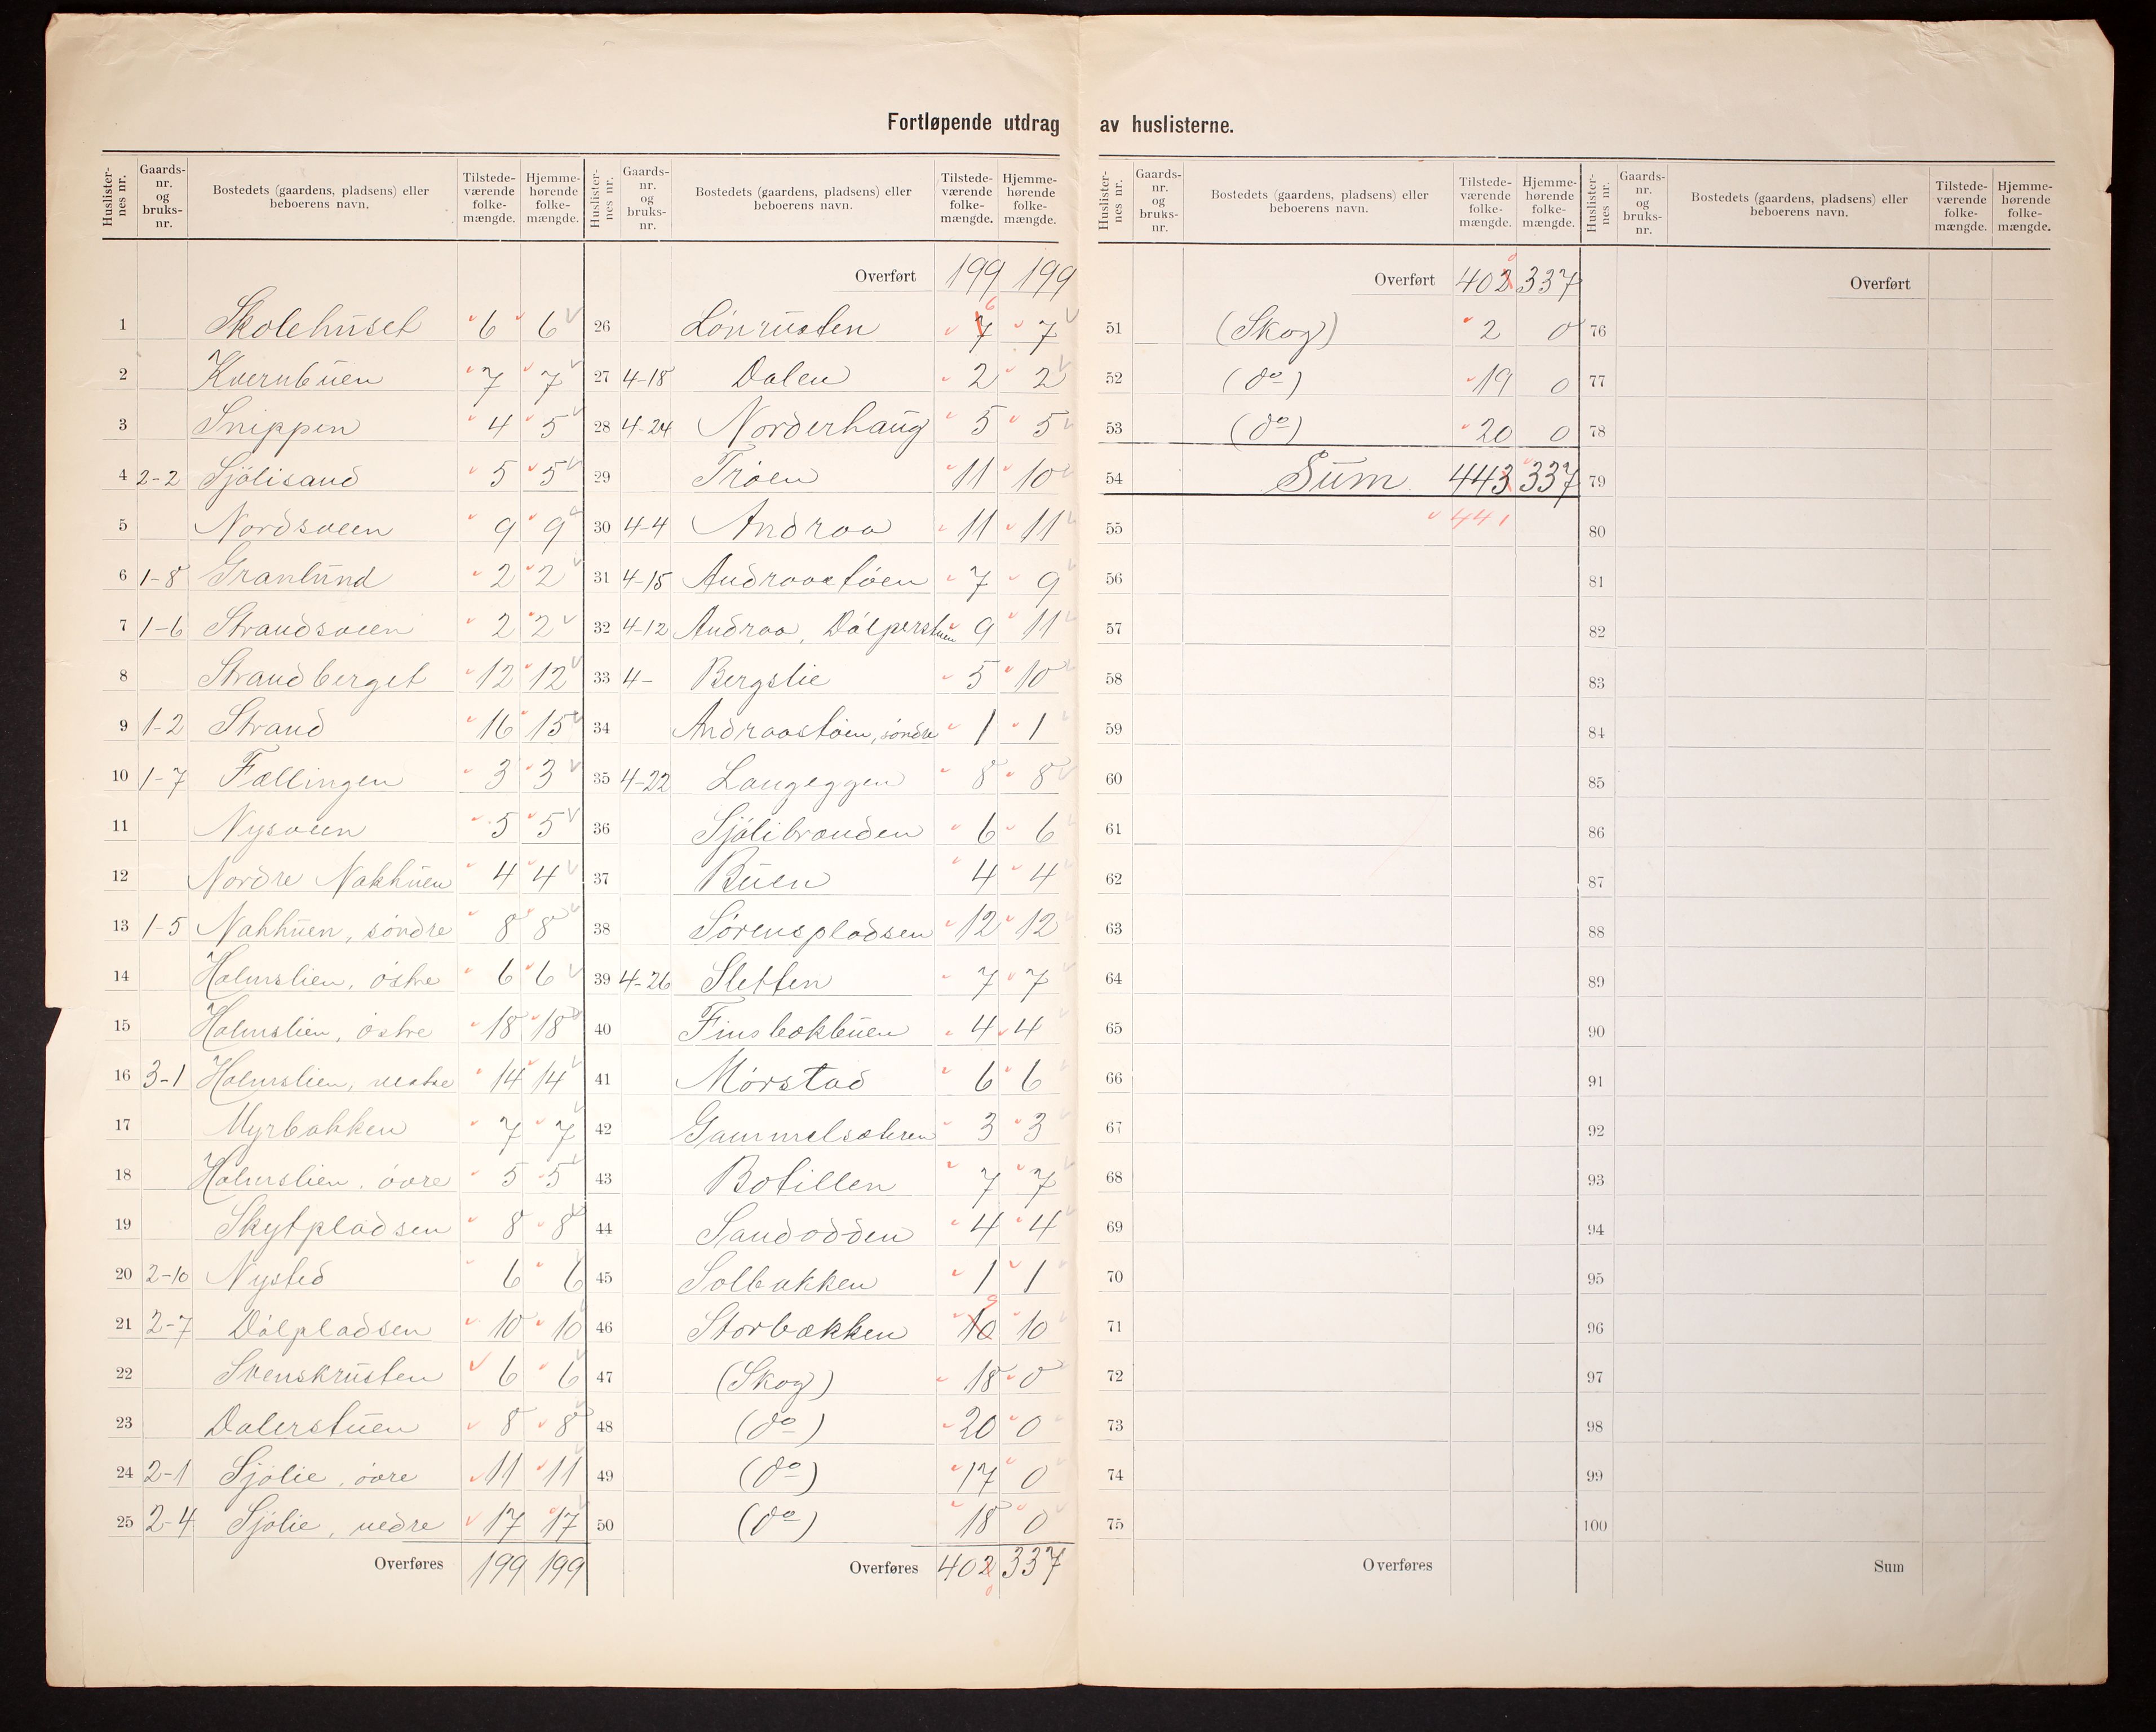 Fortløpende utdrag av huslisterne.
Huslister-nes nr. Gaards-nr. og bruks-nr. Bostedets (gaardens, pladsens) eller beboerens navn. Tilstede-værende folke-mængde. Hjemme-hørende folke-mængde.
1 Skolehuset 6 6
2 Kvernbuen 7 7
3 Snippen 4 5
4 2-2 Sjölisand 5 5
5 Nordsveen 9 9
6 1-8 Granlund 2 2
7 1-6 Strandsveen 2 2
8 Strandberget 12 12
9 1-2 Strand 16 15
10 1-7 Fællingen 3 3
11 Nysveen 5 5
12 Nordre Nakhuen 4 4
13 1-5 Nakhuen, söndre 8 8
14 Holmslien, östre 6 6
15 Holmslien, östre 18 18
16 3-1 Holmslien, vestre 14 14
17 Myrbakken 7 7
18 Holmslien, övre 5 5
19 Skytpladsen 8 8
20 2-10 Nysted 6 6
21 2-7 Dölpladsen 10 10
22 Svenskrusten 6 6
23 Dalerstuen 8 8
24 2-1 Sjölie, övre 11 11
25 2-4 Sjölie, nedre 17 17
Overføres 199 199
Huslister-nes nr. Gaards-nr. og bruks-nr. Bostedets (gaardens, pladsens) eller beboerens navn. Tilstede-værende folke-mængde. Hjemme-hørende folke-mængde.
Overført 199 199
26 Lönrusten 7 6 7
27 4-18 Dalen 2 2
28 4-24 Norderhaug 5 5
29 Tröen 11 10
30 4-4 Andraa 11 11
31 4-15 Andraastöen 7 9
32 4-12 Andraa, Dölperstuen 9 11
33 4- Bergslie 5 10
34 Andraastöen, söndre 1 1
35 4-22 Langeggen 8 8
36 Sjölibranden 6 6
37 Buen 4 4
38 Sörenspladsen 12 12
39 4-26 Sletten 7 7
40 Finsbækbuen 4 4
41 Mörstad 6 6
42 Gammelsætren 3 3
43 Botillen 7 7
44 Sandodden 4 4
45 Solbakken 1 1
46 Storbækken 10 9 10
47 (Skog) 18 0
48 (do) 20 0
49 (do) 17 0
50 (do) 18 0
Overføres 402 337
0
Huslister-nes nr. Gaards-nr. og bruks-nr. Bostedets (gaardens, pladsens) eller beboerens navn. Tilstede-værende folke-mængde. Hjemme-hørende folke-mængde.
Overført 402 0 337
51 (Skog) 2 0
52 (do) 19 0
53 (do) 20 0
54 Sum 443 337
55 441
56
57
58
59
60
61
62
63
64
65
66
67
68
69
70
71
72
73
74
75
Overføres
Huslister-nes nr. Gaards-nr. og bruks-nr. Bostedets (gaardens, pladsens) eller beboerens navn. Tilstede-værende folke-mængde. Hjemme-hørende folke-mængde.
Overført
76
77
78
79
80
81
82
83
84
85
86
87
88
89
90
91
92
93
94
95
96
97
98
99
100
Sum